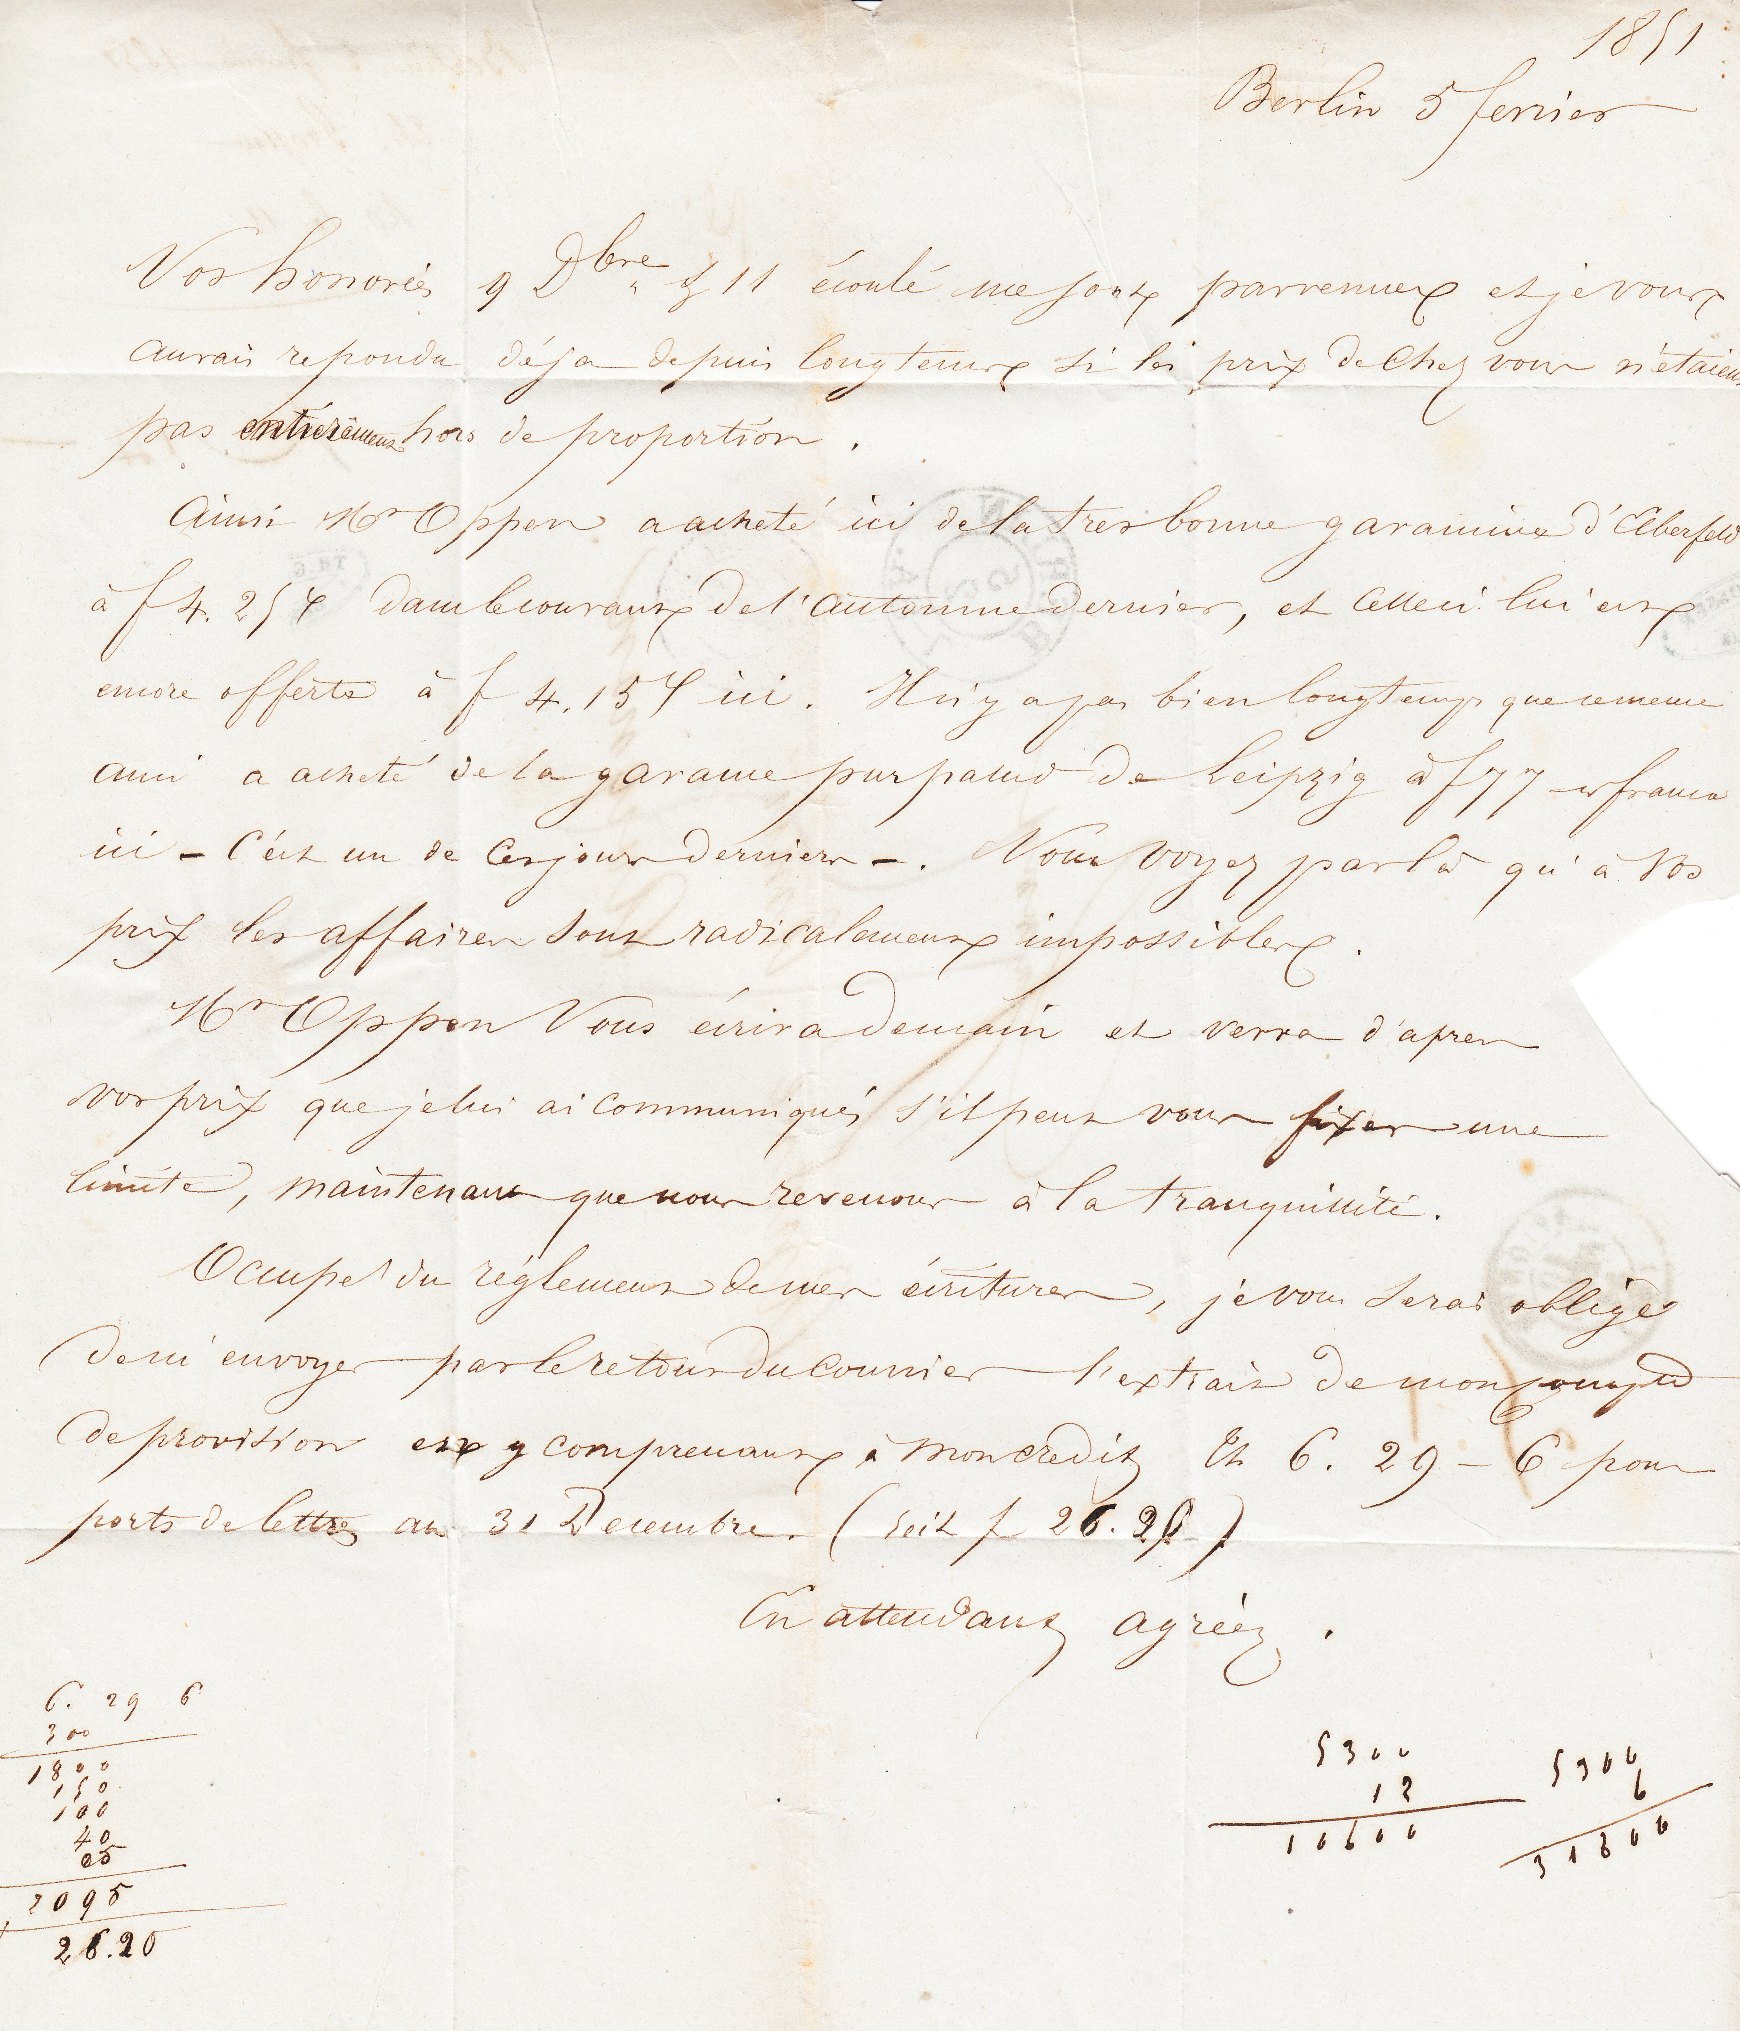 1851
Berlin 5 fevrier
Vos honorées 9 Dbre & 11 écoulé me sont parvenues et je vous
aurais repondu déja depuis longtems si les prix de chez vous n'étaient
pas entièrement hors de proportion.
Ainsi Mr Oppen a acheté ici de la tres bonne garancine d'Elberfeld
à f 4.25 dans le courant de l'automne dernier, et celle ci lui est
encore offerte à f 4.15 ici. Il n'y a pas bien longtemps que ce meme
ami a acheté de la garance pur palud de Leipzig à f 77 franco
ici - C'est un de ces jours derniers -. Vous voyez par là qu'à vos
prix les affaires sont radicalement impossibles.
Mr Oppen Vous écrira demain et verra d'apres
vos prix que je lui ai communiqués s'il peut vous fixer une
limite, maintenant que nous revenons à la tranquillité.
Occupé du réglement de mes écritures, je vous serai obligé
de m'envoyer par le retour du courrier l'extrait de mon compte
de provision en y comprenant à mon credit Th 6. 29 - 6 pour
ports de lettres au 31 Decembre. (soit f 26.20)
En attendant agréez.
6. 29 6
300
1800
150
100
40
05
2095
26.20
5300
12
10600
5300
6
31800